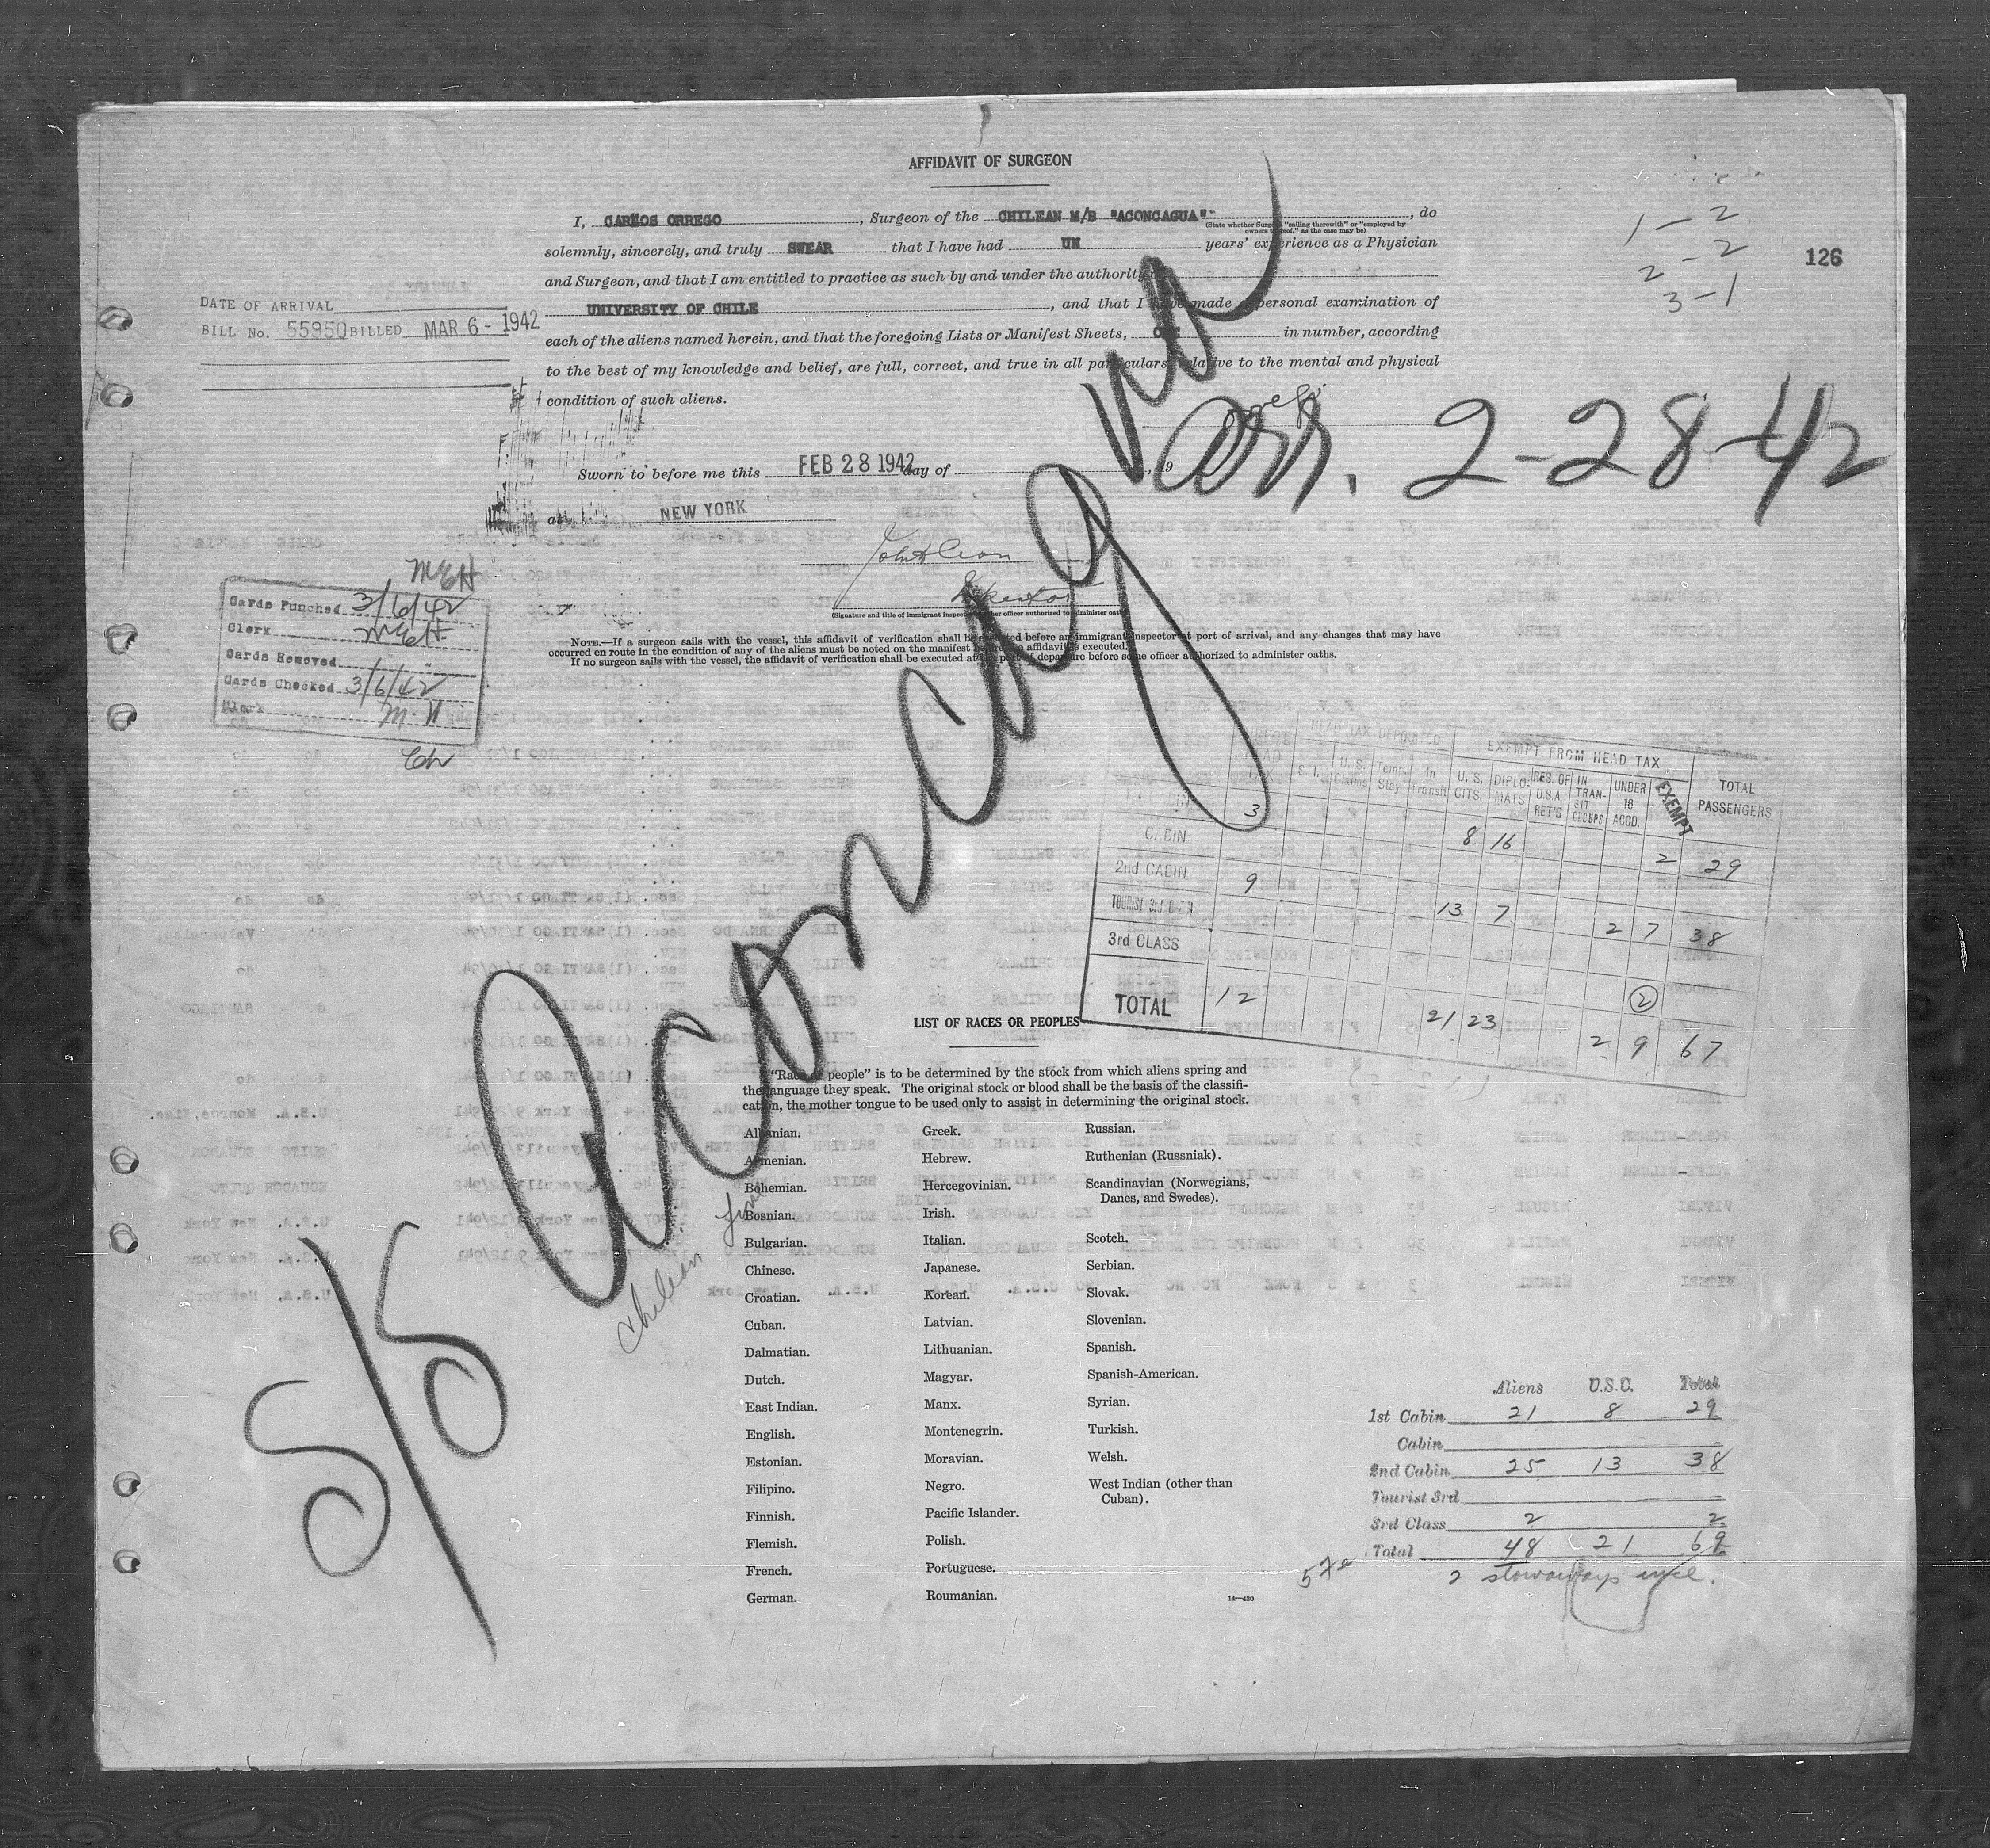 AFFIDAVIT OF SURGEON
I, CARLOS ORREGO, Surgeon of the CHILEAN M/S "ACONCAGUA", do
(State whether Surgeon "sailing therewith" or "employed by
owners thereof," as the case may be)
solemnly, sincerely, and truly SWEAR that I have had UN years' experience as a Physician
and Surgeon, and that I am entitled to practice as such by and under the authority of
UNIVERSITY OF CHILE, and that I have made a personal examination of
each of the aliens named herein, and that the foregoing Lists or Manifest Sheets, ONE in number, according
to the best of my knowledge and belief, are full, correct, and true in all particulars relative to the mental and physical
condition of such aliens.
1-2
2-2
3-1
126
DATE OF ARRIVAL
BILL No. 55950 BILLED MAR 6 - 1942
Orrego
arr. 2-28-42
Sworn to before me this FEB 28 1942 day of , 19
at NEW YORK
Inspector
(Signature and title of immigrant inspector or other officer authorized to administer oaths)
NOTE.—If a surgeon sails with the vessel, this affidavit of verification shall be executed before an immigrant inspector at port of arrival, and any changes that may have
occurred en route in the condition of any of the aliens must be noted on the manifest before the affidavit is executed.
If no surgeon sails with the vessel, the affidavit of verification shall be executed at the port of departure before some officer authorized to administer oaths.
MEH
Cards Punched 3/6/42
Clerk MEH
Cards Removed "
Cards Checked 3/6/42
Clerk M. H
S/S Aconcagua
Chilean Line
HEAD TAX DEPOSITED
EXEMPT FROM HEAD TAX
S. I. U. S. Claims Temp. Stay In Transit U. S. CITS. DIPLO-MATS RES. OF U.S.A. RET'G IN TRAN-SIT GROUPS UNDER 16 ACCD. EXEMPT TOTAL PASSENGERS
1st CABIN 3 8 16 2 29
CABIN
2nd CABIN 9 13 7 2 7 38
TOURIST 3rd CABIN
3rd CLASS 2
TOTAL 12 21 23 2 9 67
LIST OF RACES OR PEOPLES
"Race or people" is to be determined by the stock from which aliens spring and
the language they speak. The original stock or blood shall be the basis of the classifi-
cation, the mother tongue to be used only to assist in determining the original stock.
Albanian.
Armenian.
Bohemian.
Bosnian.
Bulgarian.
Chinese.
Croatian.
Cuban.
Dalmatian.
Dutch.
East Indian.
English.
Estonian.
Filipino.
Finnish.
Flemish.
French.
German.
Greek.
Hebrew.
Hercegovinian.
Irish.
Italian.
Japanese.
Korean.
Latvian.
Lithuanian.
Magyar.
Manx.
Montenegrin.
Moravian.
Negro.
Pacific Islander.
Polish.
Portuguese.
Roumanian.
Russian.
Ruthenian (Russniak).
Scandinavian (Norwegians,
Danes, and Swedes).
Scotch.
Serbian.
Slovak.
Slovenian.
Spanish.
Spanish-American.
Syrian.
Turkish.
Welsh.
West Indian (other than
Cuban).
14—430
Aliens U.S.C. Total
1st Cabin 21 8 29
Cabin
2nd Cabin 25 13 38
Tourist 3rd
3rd Class 2 2
Total 48 21 69
2 stowaways incl.